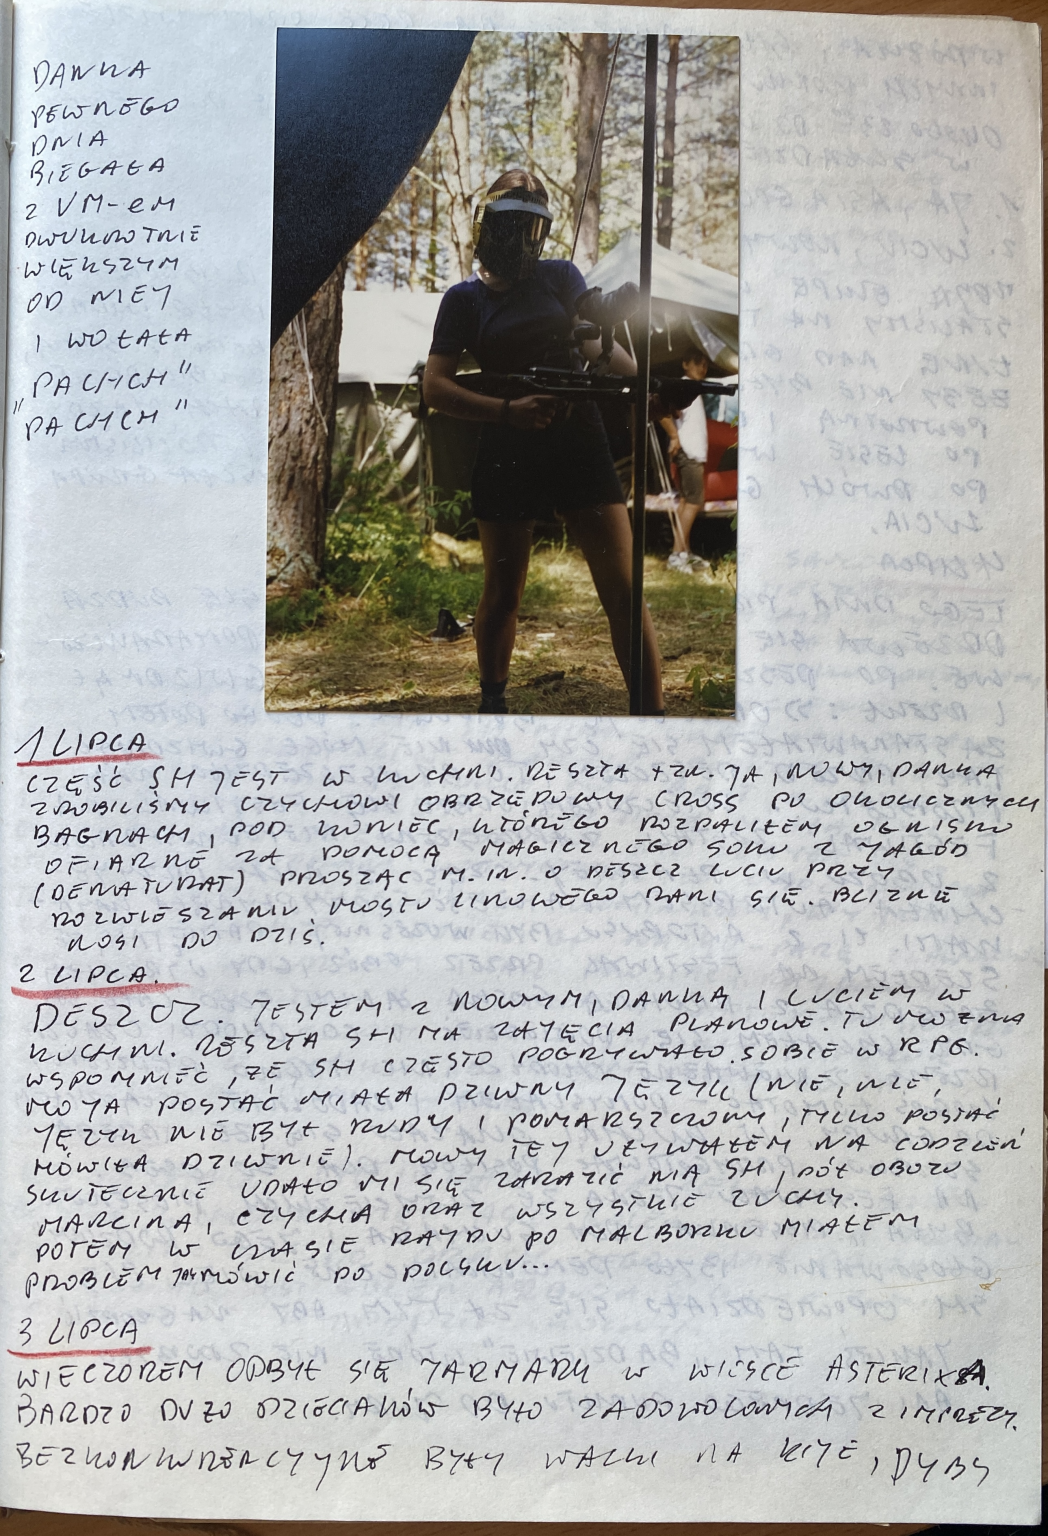 DANKA
PEWNEGO
DNIA
BIEGAŁA
Z VM-eM
DWUKROTNIE
WIĘKSZYM
OD NIEJ
I WOŁAŁA
"PACHCH"
"PACHCH"
1 LIPCA
CZĘŚĆ SH JEST W KUCHNI. RESZTA TZN. JA, NOWY, DANKA
ZROBILIŚMY CZYCHOWI OBRZĘDOWY CROSS PO OKOLICZNYCH
BAGNACH, POD KONIEC, KTÓREGO ROZPALIŁEM OGNISKO
OFIARNE ZA POMOCĄ MAGICZNEGO SOKU Z JAGÓD
(DENATURAT) PROSZĄC M.IN. O DESZCZ LUCIU PRZY
ROZWIESZANIU MOSTU LINOWEGO RANI SIĘ. BLIZNĘ
NOSI DO DZIŚ.
2 LIPCA.
DESZCZ. JESTEM Z NOWYM, DANKĄ I LUCIEM W
KUCHNI. RESZTA SH MA ZAJĘCIA PLANOWE. TU MOŻNA
WSPOMNIEĆ, ŻE SH CZĘSTO POGRYWAŁO SOBIE W RPG.
MOJA POSTAĆ MIAŁA DZIWNY JĘZYK (NIE, NIE,
JĘZYK NIE BYŁ RUDY I POMARSZCZONY, TYLKO POSTAĆ
MÓWIŁA DZIWNIE). MOWY TEJ UŻYWAŁEM NA CODZIEŃ
SKUTECZNIE UDAŁO MI SIĘ ZARAZIĆ NIĄ SH, PÓŁ OBOZU
MARCINA, CZYCHA ORAZ WSZYSTKIE ZUCHY.
POTEM W CZASIE RAJDU PO MALBORKU MIAŁEM
PROBLEM MÓWIĆ PO POLSKU...
3 LIPCA
WIECZOREM ODBYŁ SIĘ JARMARK W WIOSCE ASTERIXA.
BARDZO DUŻO DZIECIAKÓW BYŁO ZADOWOLONYCH Z IMPREZY.
BEZKONKURENCYJNE BYŁY WALKI NA KIJE, DYBY